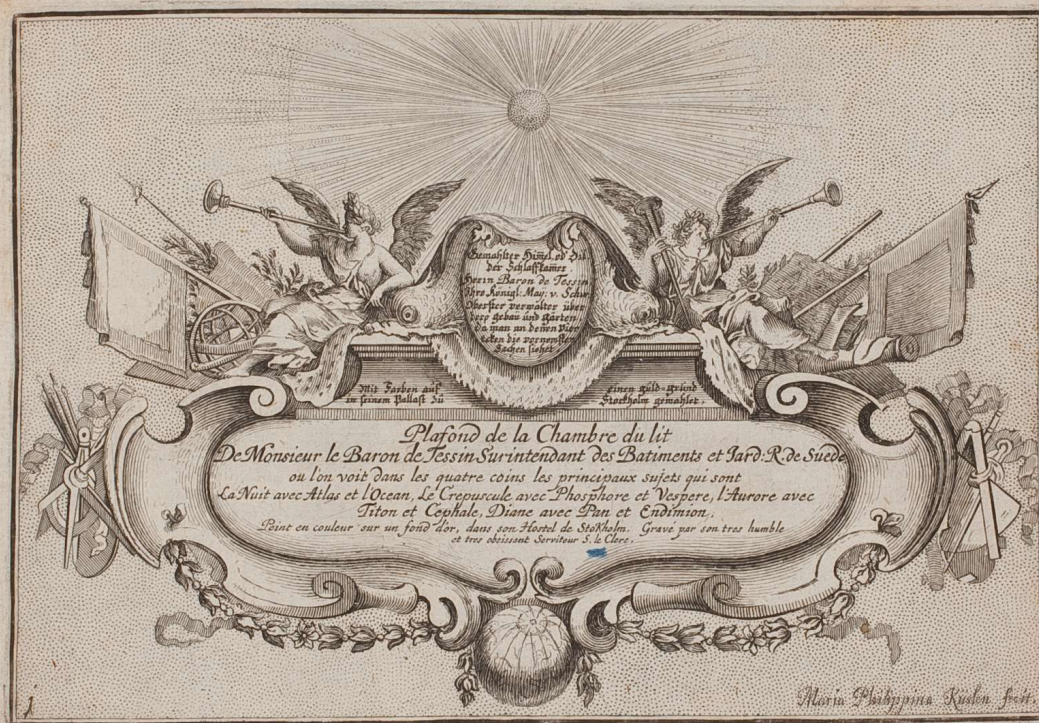 Gemahlter Himel od
der Schlaffkamer
Herrn Baron de Tessin
Ihro Königl: May: v. Schw
Oberster verwalter über
gebäu und gärten,
da man an denen vier
ecken die vornemsten
Sachen siehet
Mit Farben auf einen guld-grund
in seinem Pallast zu Stockholm gemahlet.
Plafond de la Chambre du lit
De Monsieur le Baron de Tessin Surintendant des Batiments et Jard: R de Suede
ou l'on voit dans les quatre coins les principaux sujets qui sont
La Nuit avec Atlas et l'Ocean, Le Crepuscule avec Phosphore et Vespere, l'Aurore avec
Titon et Cephale, Diane avec Pan et Endimion.
Peint en couleur sur un fond d'or, dans son Hostel de StoKholm. Gravé par son tres humble
et tres obeissant Serviteur S. le Clerc.
1
Maria Philippina Küslen fecit.